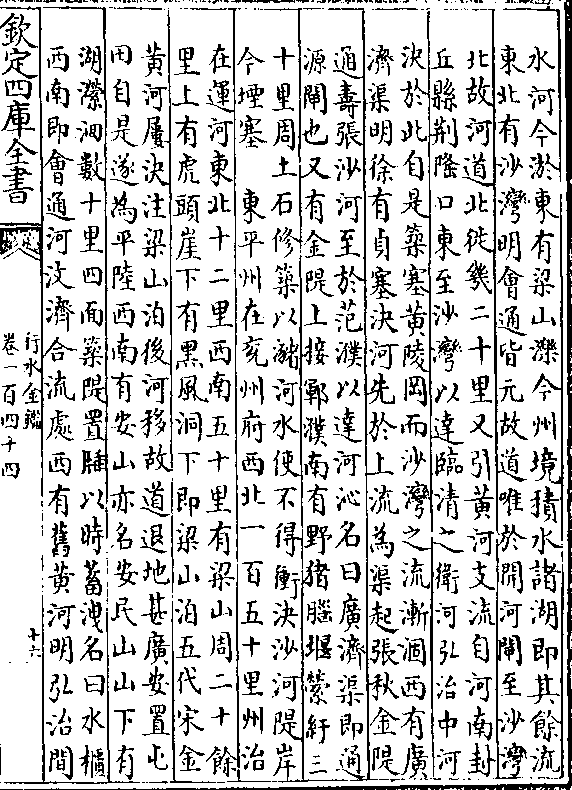 水河今淤東有梁山濼今州境積水諸湖即其餘流
東北有沙灣明會通皆元故道唯於開河閘至沙灣
北故河道北徙幾二十里又引黃河支流自河南封
丘縣荆隆口東至沙灣以達臨清之衛河弘治中河
決於此自是築塞黃陵岡而沙灣之流漸涸西有廣
濟渠明徐有貞塞決河先於上流為渠起張秋金隄
通壽張沙河至於范濮以達河沁名曰廣濟渠即通
源閘也又有金隄上接鄆濮南有野猪腦堰縈紆三
十里周土石修築以瀦河水使不得衝決沙河隄岸
今堙塞 東平州在兗州府西北一百五十里州治
在運河東北十二里西南五十里有梁山周二十餘
里上有虎頭崖下有黑風洞下即梁山泊五代宋金
黃河屢決注梁山泊後河移故道退地甚廣安置屯
田自是遂為平陸西南有安山亦名安民山山下有
湖瀠洄數十里四面築隄置牐以時蓄洩名曰水櫃
西南即會通河汶濟合流處西有舊黃河明弘治間
欽定四庫全書
行水金鑑
卷一百四十四
十六